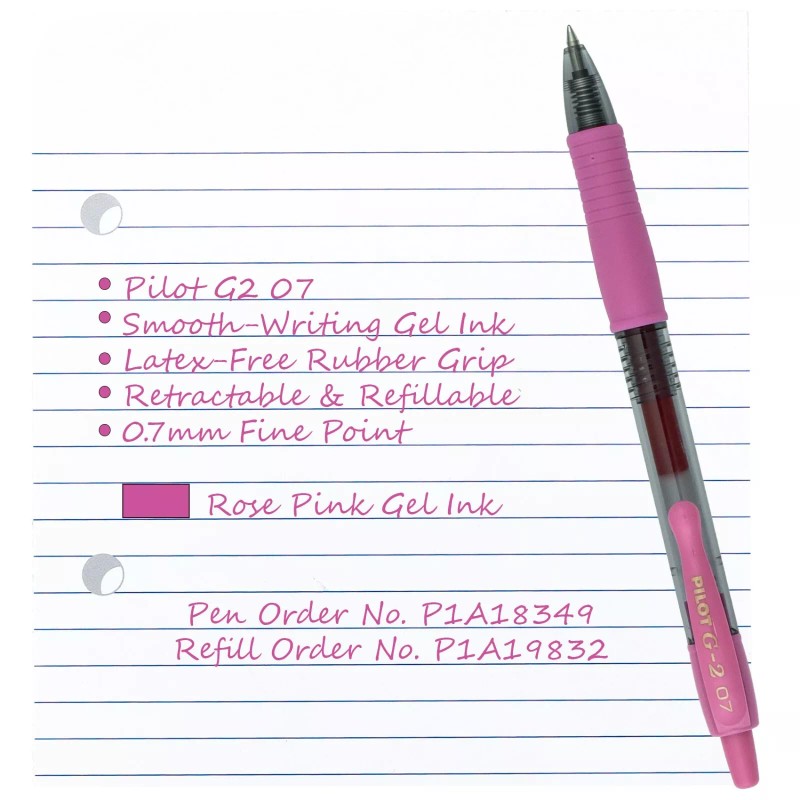 • Pilot G2 07
• Smooth-Writing Gel Ink
• Latex-Free Rubber Grip
• Retractable & Refillable
• 0.7mm Fine Point
Rose Pink Gel Ink
Pen Order No. P1A18349
Refill Order No. P1A19832
PILOT G-2 07